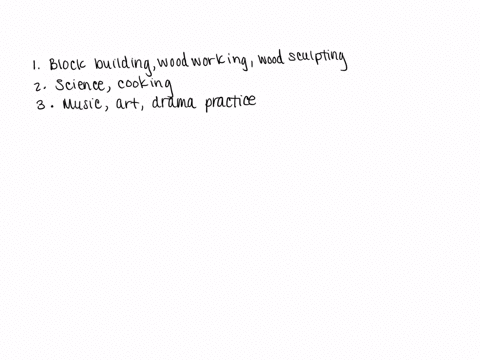 1. Block building, woodworking, wood sculpting
2. Science, cooking
3. Music, art, drama practice